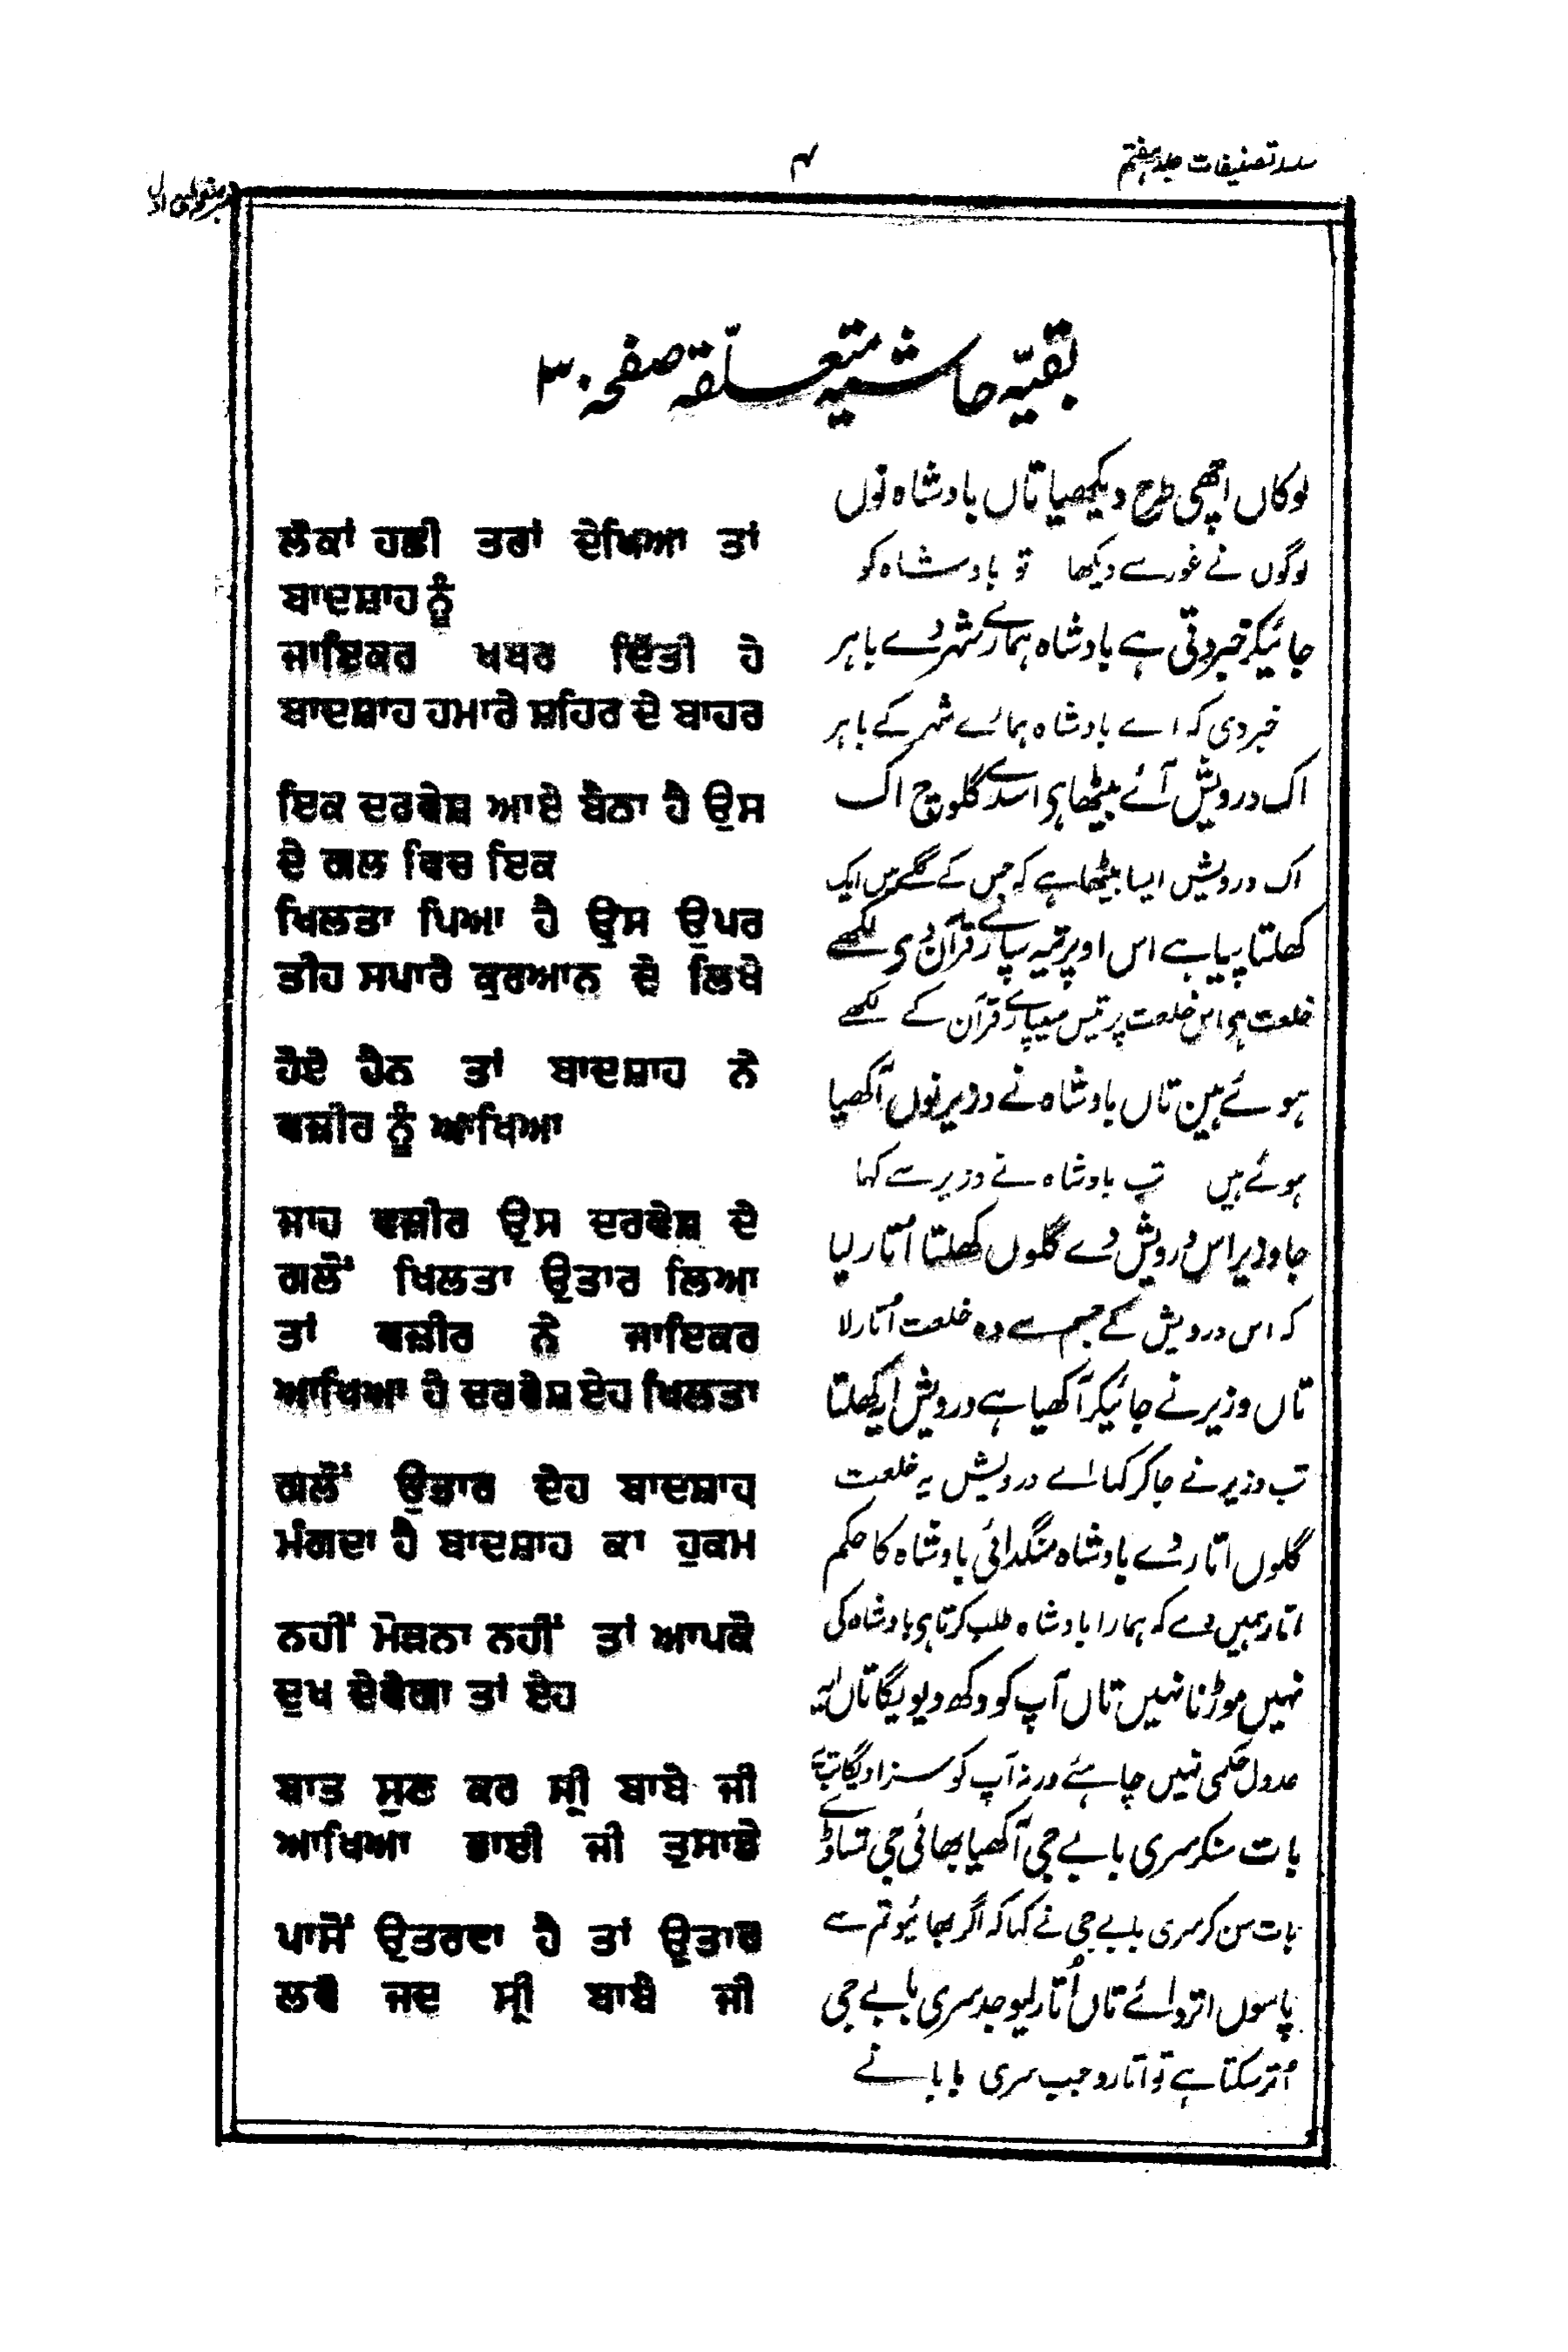 سلسلہ تصنیفات جلد ہفتم
۴
بقیّہ حاشیہ متعلّقہ صفحہ ۳۰
لوکاں اچھی طرح دیکھیا تاں بادشاہ نوں
لوگوں نے غور سے دیکھا تو بادشاہ کو
جائیکر خبر دتی ہے بادشاہ ہمارے شہر دے باہر
خبر دی کہ اے بادشاہ ہمارے شہر کے باہر
اک درویش آئے بیٹھا ہی اسدے گلوچ اک
اک درویش ایسا بیٹھا ہے کہ جس کے گلے میں ایک
کھلتا پیا ہے اس اوپر تیہ سپارے قرآن دی لکھے
خلعت ہی اس خلعت پر تیس سیپارے قرآن کے لکھے
ہوئے ہین تاں بادشاہ نے وزیر نوں آکھیا
ہوئے ہیں تب بادشاہ نے وزیر سے کہا
جا وزیر اس درویش دے گلوں کھلتا اُتار لیا
کہ اس درویش کے جسم سے وہ خلعت اُتار لا
تاں وزیر نے جائیکر آکھیا ہے درویش ایہ کھلتا
تب وزیر نے جا کر کہا اے درویش یہ خلعت
گلوں اتار دے بادشاہ منگدائی بادشاہ کا حکم
اتار ہمیں دے کہ ہمارا بادشاہ طلب کرتا ہی بادشاہ کی
نہیں موڑنا نہیں تاں آپ کو دکھ دیویگا تاں ایہ
عدول حکمی نہیں چاہئے ورنہ آپ کو سزا دیگا تب یہ
بات سنکر سری بابے جی آکھیا بھائی جی تساڈے
بات سن کر سری بابے جی نے کہا کہ اگر بھائیو تم سے
پاسوں اتردا ئے تاں اُتار لیو جد سری بابے جی
اُتر سکتا ہے تو اتارو جب سری بابا نے
ਲੋਕਾਂ ਹਛੀ ਤਰਾਂ ਦੇਖਿਆ ਤਾਂ
ਬਾਦਸ਼ਾਹ ਨੂੰ
ਜਾਇਕਰ ਖਬਰ ਦਿੱਤੀ ਹੇ
ਬਾਦਸ਼ਾਹ ਹਮਾਰੇ ਸ਼ਹਿਰ ਦੇ ਬਾਹਰ
ਇਕ ਦਰਵੇਸ਼ ਆਏ ਬੈਠਾ ਹੈ ਉਸ
ਦੇ ਗਲ ਵਿਚ ਇਕ
ਖਿਲਤਾ ਪਿਆ ਹੈ ਉਸ ਉਪਰ
ਤੀਹ ਸਪਾਰੇ ਕੁਰਆਨ ਦੇ ਲਿਖੇ
ਹੋਏ ਹੈਨ ਤਾਂ ਬਾਦਸ਼ਾਹ ਨੇ
ਵਜ਼ੀਰ ਨੂੰ ਆਖਿਆ
ਜਾਹ ਵਜ਼ੀਰ ਉਸ ਦਰਵੇਸ਼ ਦੇ
ਗਲੋਂ ਖਿਲਤਾ ਉਤਾਰ ਲਿਆ
ਤਾਂ ਵਜ਼ੀਰ ਨੇ ਜਾਇਕਰ
ਆਖਿਆ ਹੇ ਦਰਵੇਸ਼ ਏਹ ਖਿਲਤਾ
ਗਲੋਂ ਉਤਾਰ ਦੇਹ ਬਾਦਸ਼ਾਹ
ਮੰਗਦਾ ਹੈ ਬਾਦਸ਼ਾਹ ਕਾ ਹੁਕਮ
ਨਹੀਂ ਮੋੜਨਾ ਨਹੀਂ ਤਾਂ ਆਪਕੋ
ਦੁਖ ਦੇਵੇਗਾ ਤਾਂ ਏਹ
ਬਾਤ ਸੁਣ ਕਰ ਸ੍ਰੀ ਬਾਬੇ ਜੀ
ਆਖਿਆ ਭਾਈ ਜੀ ਤੁਸਾਡੇ
ਪਾਸੋਂ ਉਤਰਦਾ ਹੈ ਤਾਂ ਉਤਾਰ
ਲਵੋ ਜਦ ਸ੍ਰੀ ਬਾਬੇ ਜੀ